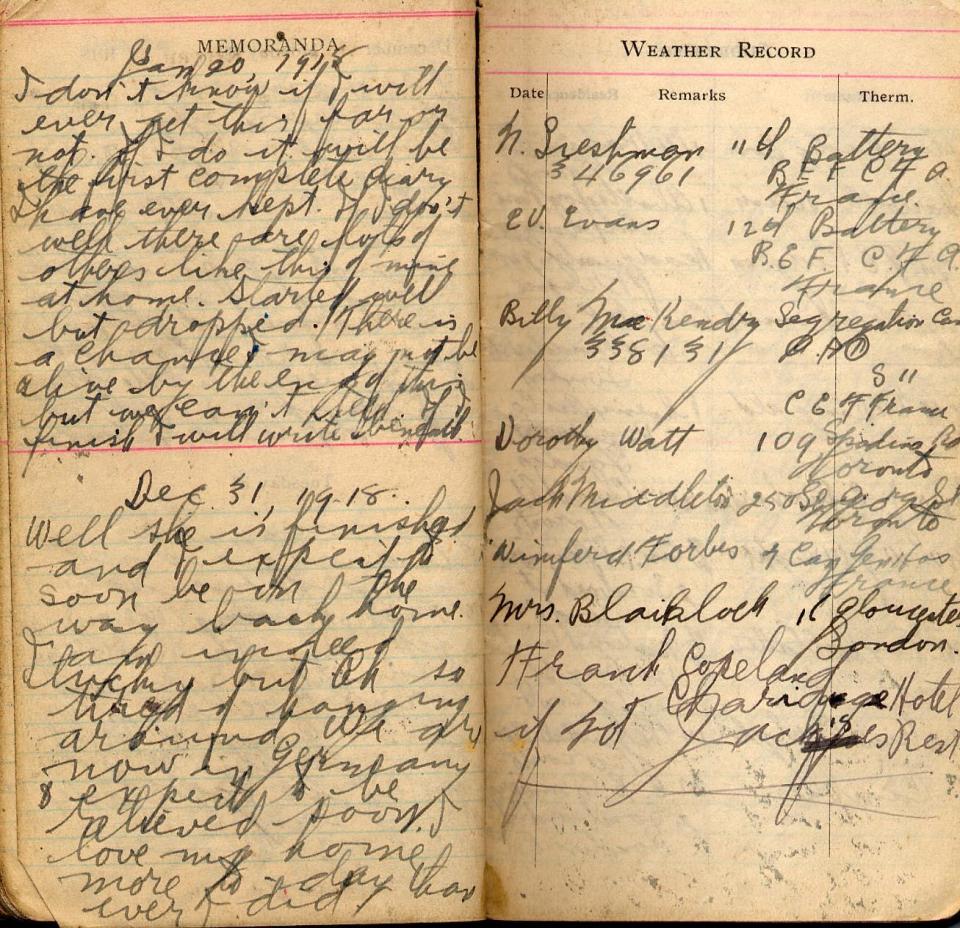 MEMORANDA
Jan 20, 191
I don't know if I will
ever get this far or
not. If I do it will be
the first complete diary
I have ever kept. If I don't
well there are lots of
others like this of mine
at home. Started well
but dropped. There is
a chance I may not be
alive by the end of this
but we can't help. If I
finish I will write beneath.
Dec 31, 1918.
Well she is finished
and I expect to
soon be on the
way back home.
I am indeed
lucky but Oh so
tired of hanging
around. We are
now in Germany
& expect to be
relieved soon. I
love my home
more to day than
ever I did
WEATHER RECORD
Date Remarks Therm.
N. 11th Battery
346961 B.E.F. C.F.A.
France.
Ed. Evans 12th Battery
B.E.F. C.F.A.
France
Billy MacKendry Segregation Cam
338131
S 11
C E F France
Dorothy Watt 109 Spadina Rd
Toronto
Jack Middleton 250 St
Toronto
Forbes 7 Can Gen Hos
France
Mrs. Blaiklock 11 Gloucester
London.
Frank Copeland
Hotel
if not Jack Rest